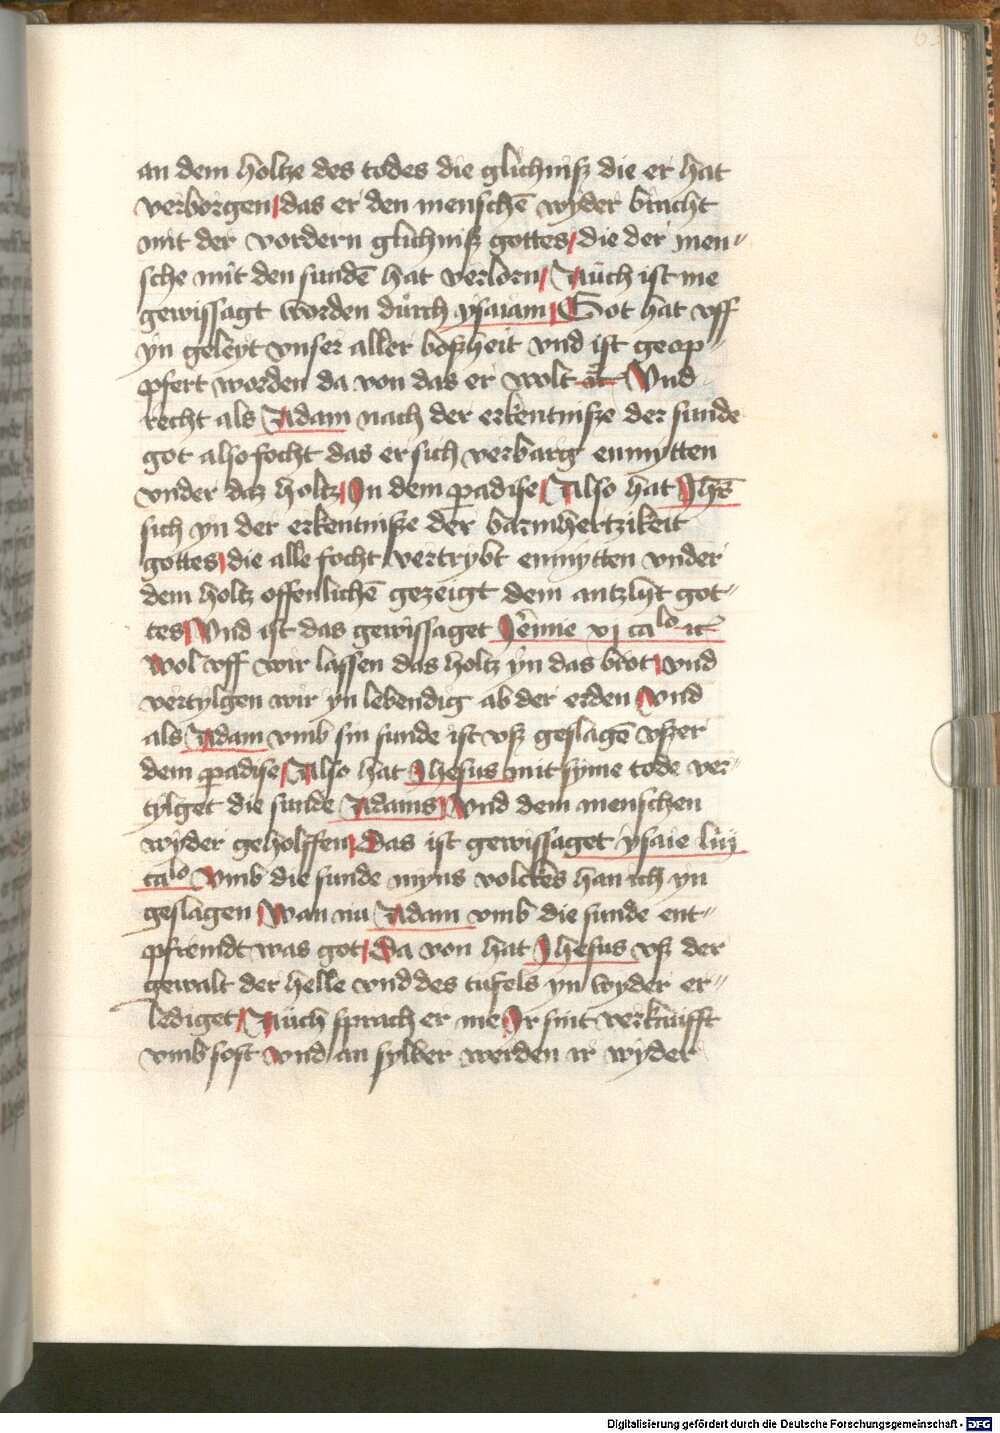 an dem holtze des todes die glichnisz die er hat
verborgen das er den menschē wyder bracht
mit der vordern glichnisz gottes die der men„
sche mit den sundē hat verlorn Auch ist me
gewissagt worden durch ysaiam Got hat vff
yn geleyt vnser aller boszheit vnd ist geop„
pfert worden da von das er wolt Vnd
recht als Adam nach der erkentnisze der sunde
got also focht das er sich verbarg enmytten
vnder daz holtz In dem padise Also hat Jhēs
sich yn der erkentnisze der barmhertzikeit
gottes die alle focht vertrybt enmytten vnder
dem holtz offenlichē gezeigt dem antzlyt got„
tes Vnd ist das gewissaget vj calo
Wol vff wir lassen das holtz yn das brot vnd
vertylgen wir yn lebendig ab der erden Vnd
als Adam vmb sin sunde ist vsz geslagē vszer
dem padise Also hat Jhesus mit syme tode ver„
tylget die sunde Adams Vnd dem menschen
wyder geholffen Das ist gewissaget ysaie liij
calo Vmb die sunde myns volckes han ich yn
geslagen Wan nu Adam vmb die sunde ent„
pfremdt was got Da von hat Jhesus vsz der
gewalt der helle vnd des tufels yn wyder er„
lediget Auch sprach er me Ir sint verkaufft
vmb sost vnd an sylber werden ir wyder
Digitalisierung gefördert durch die Deutsche Forschungsgemeinschaft - DFG